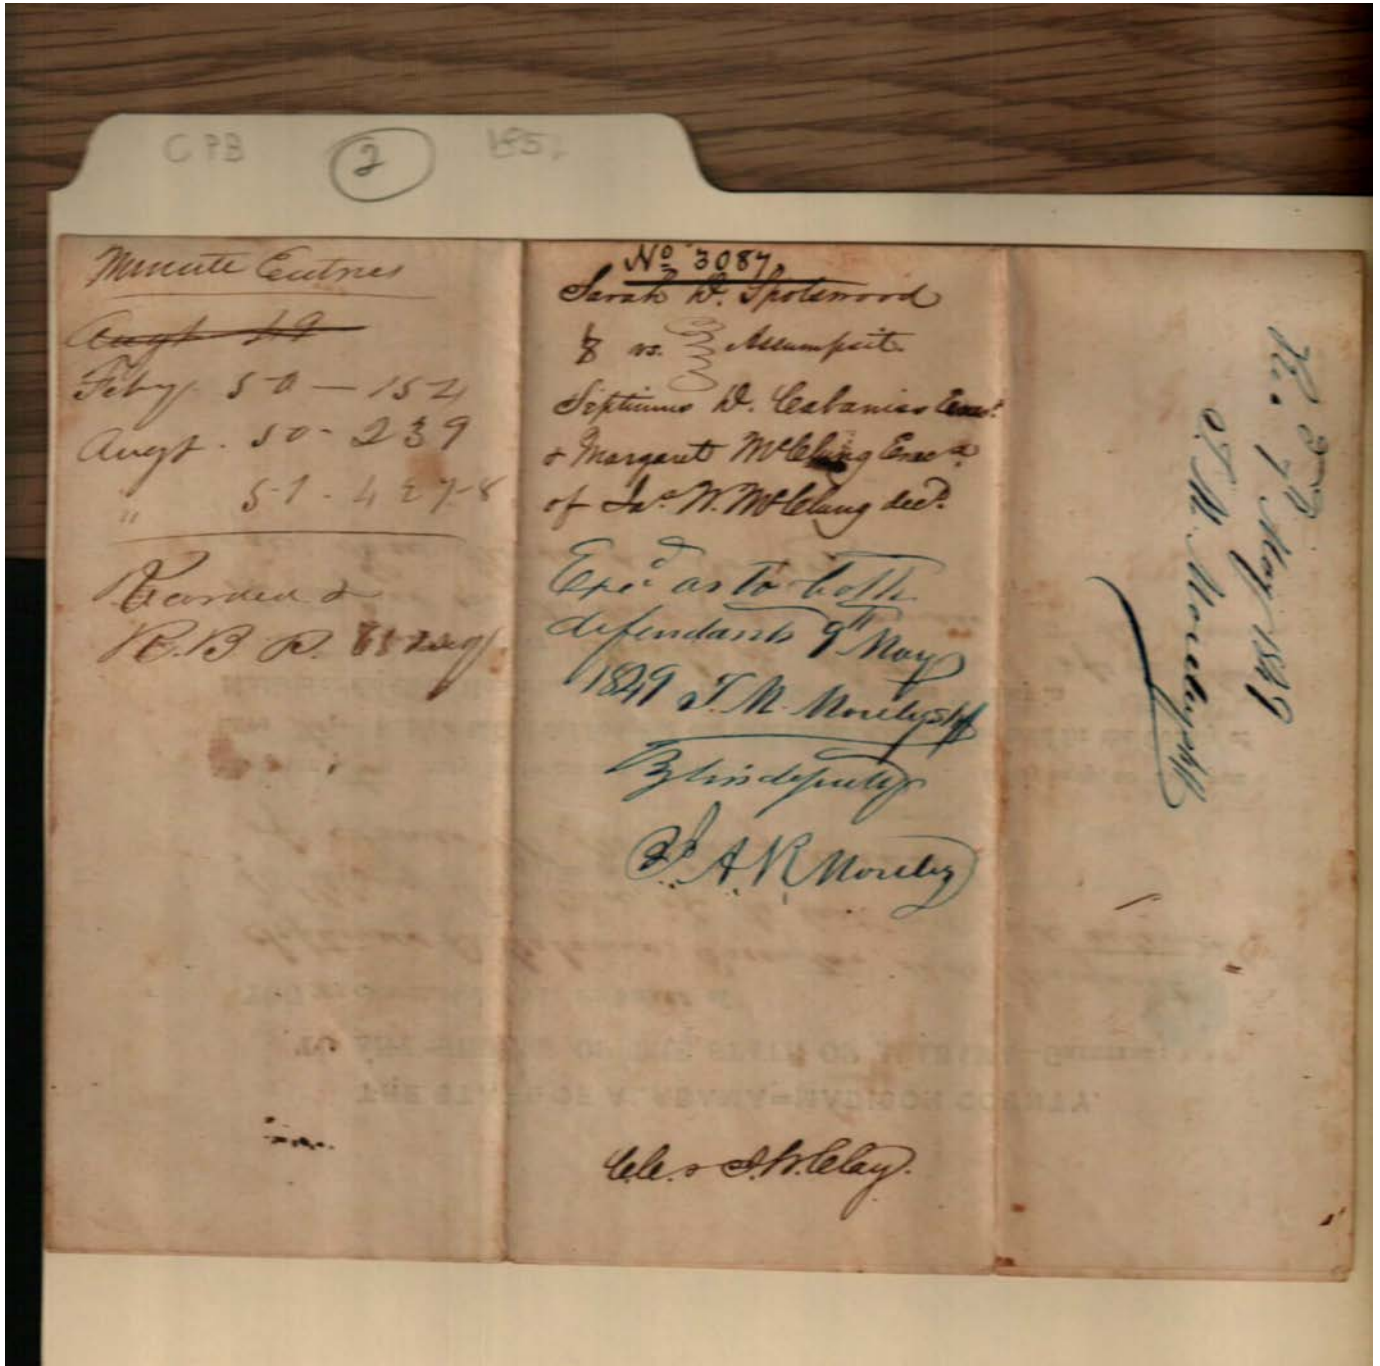 CPB 2 185
Minute Entries
Augt 49
Feby. 50 — 154
Augt. 50 - 239
" 51 - 427-8
Recorded in
R.B.
No 3087
Sarah W. Spotswood
vs. Assumpsit
Septimus D. Cabaniss Exec.r
& Margaret McClung Exec.x
of Jas. W. McClung decd.
Exed as to both
defendants 9th May
1849 T. M. Moseley shff
By his deputy
A. R. Moseley
C.C. & J.W. Clay.
Rec 3rd
of May 1849
T. M. Moseley shff